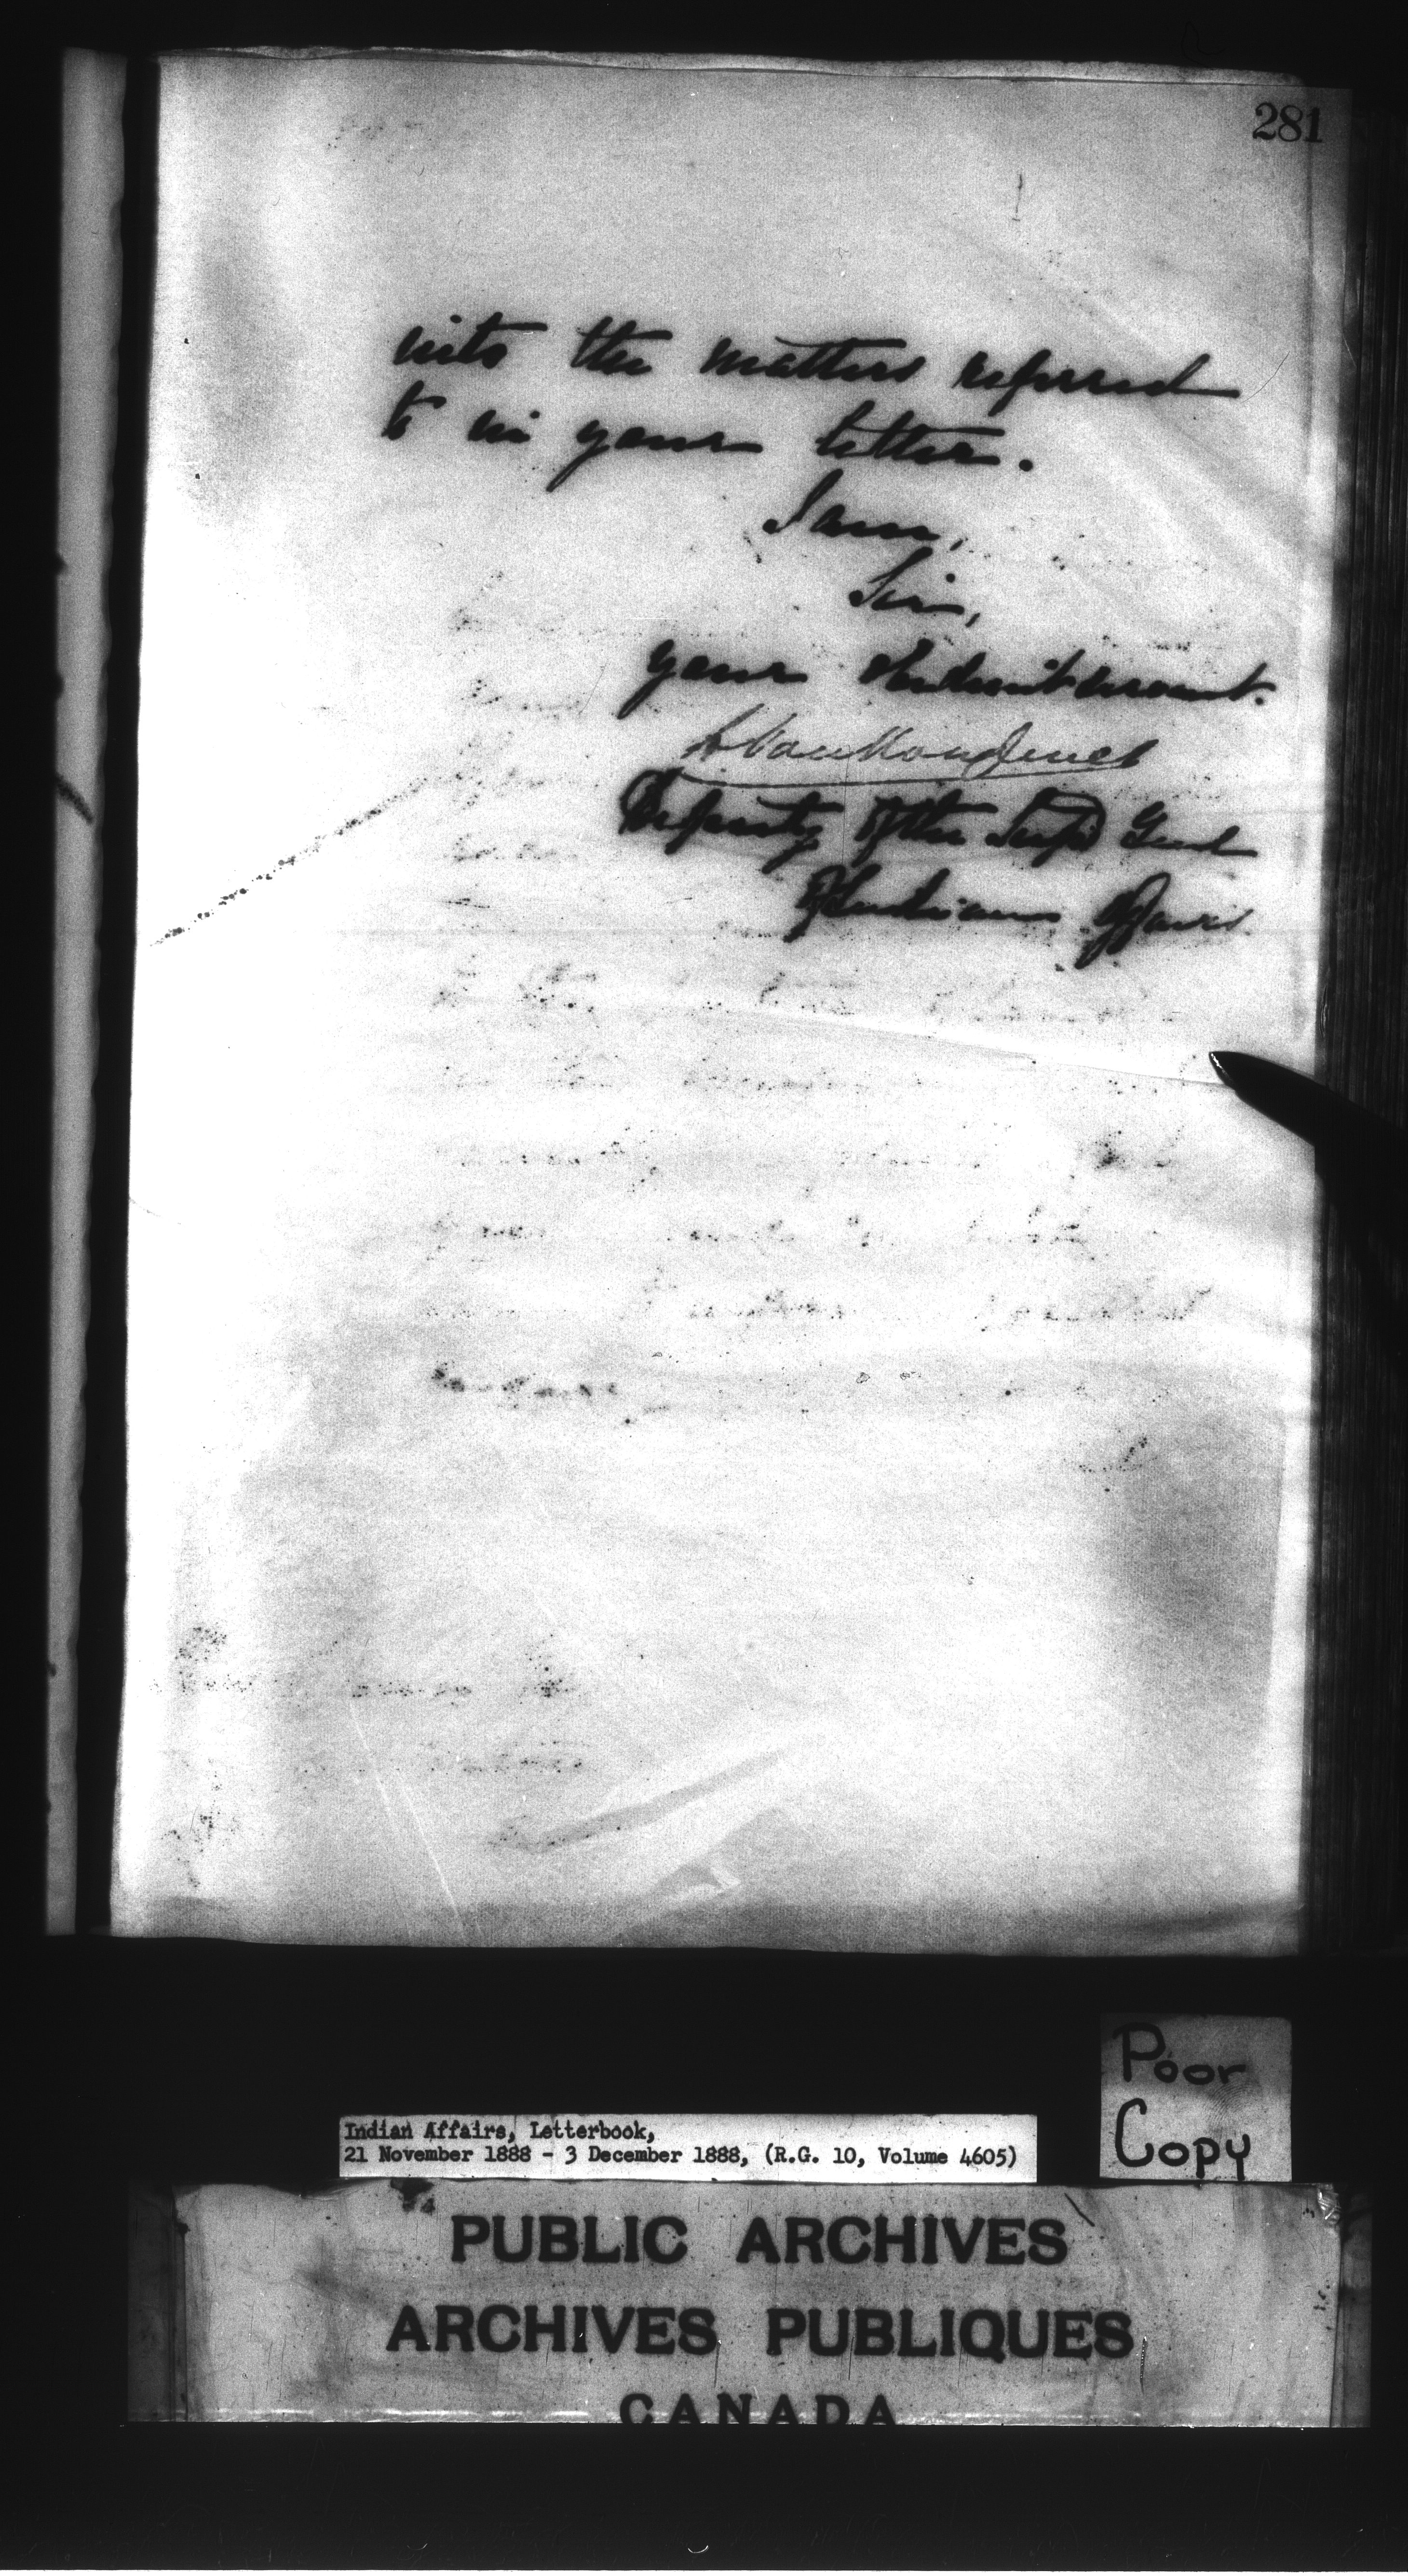 281
into the matters referred
to in your letter.
I am,
Sir,
your obedient servant.
L VanKoughnet
Deputy of the Supt Genl
of Indian Affairs
Poor
Copy
Indian Affairs, Letterbook,
21 November 1888 - 3 December 1888, (R.G. 10, Volume 4605)
PUBLIC ARCHIVES
ARCHIVES PUBLIQUES
CANADA